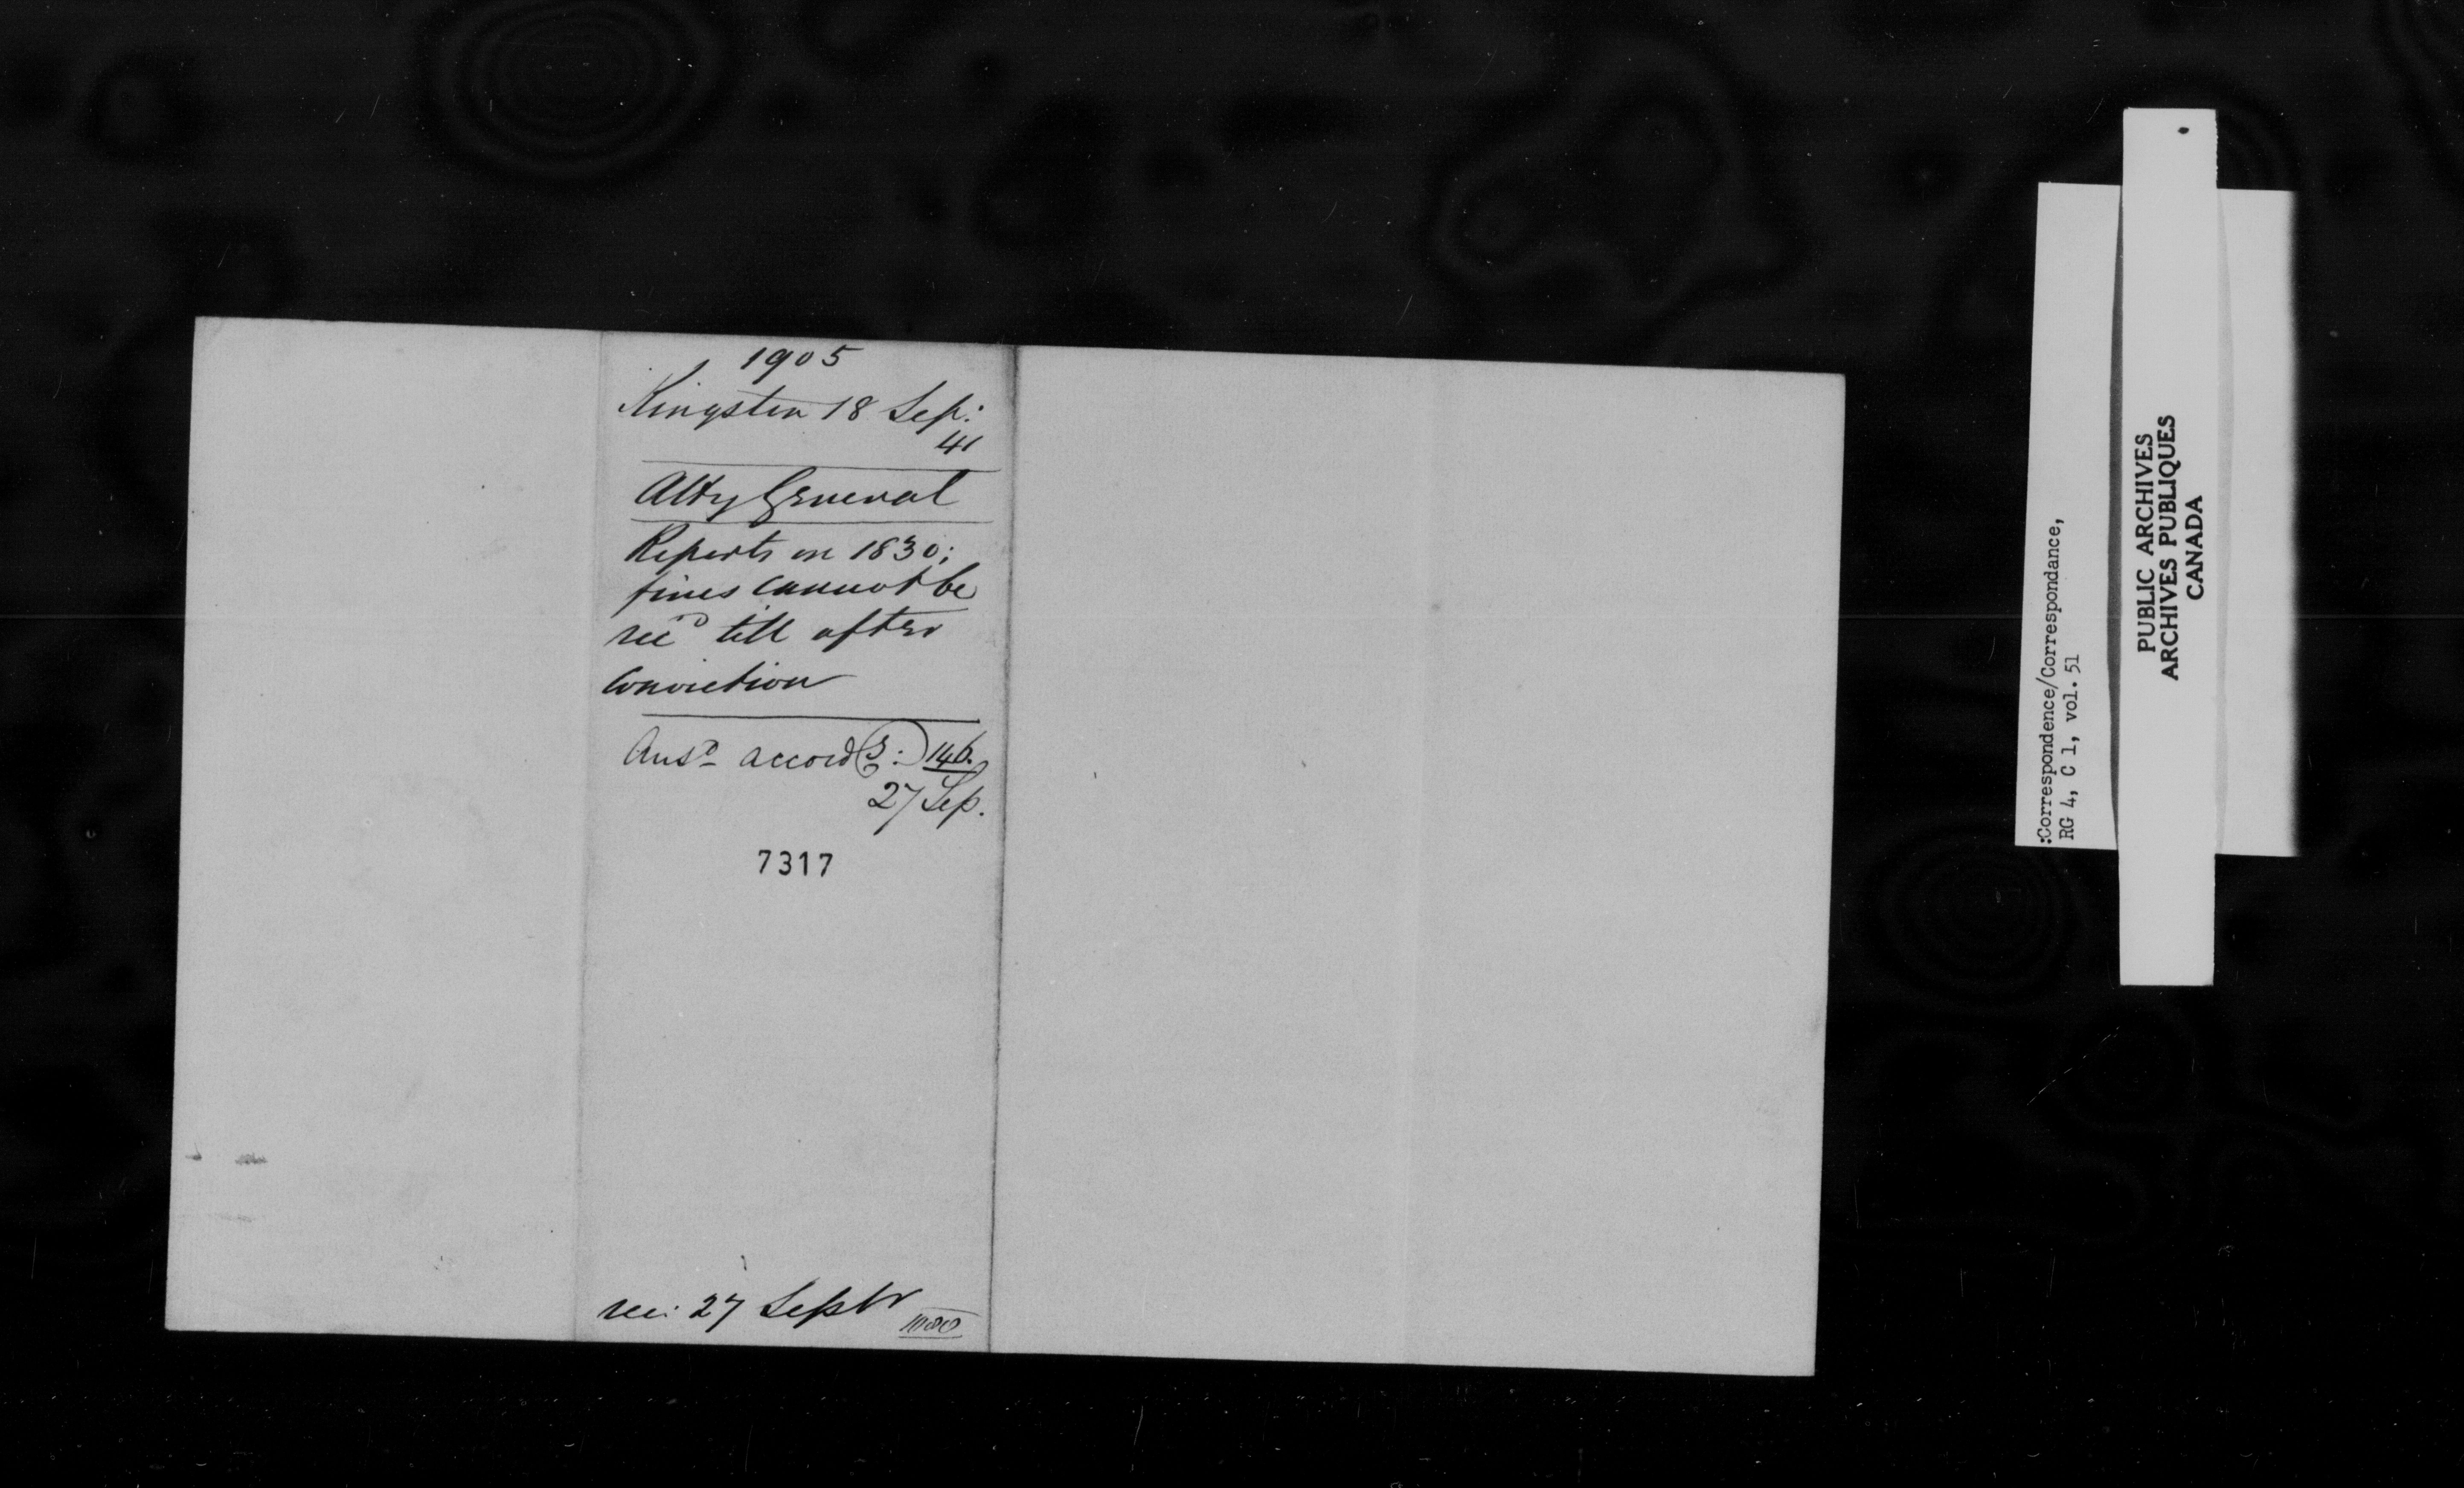 1905
Kingston 18 Sep:
41
Atty General
Reports on 1830;
fines cannot be
recd till after
Conviction
Ansd accordg:
146.
27 Sep.
7317
rec: 27 Septr
:Correspondence/Correspondance,
RG 4, C 1, vol. 51
PUBLIC ARCHIVES
ARCHIVES PUBLIQUES
CANADA